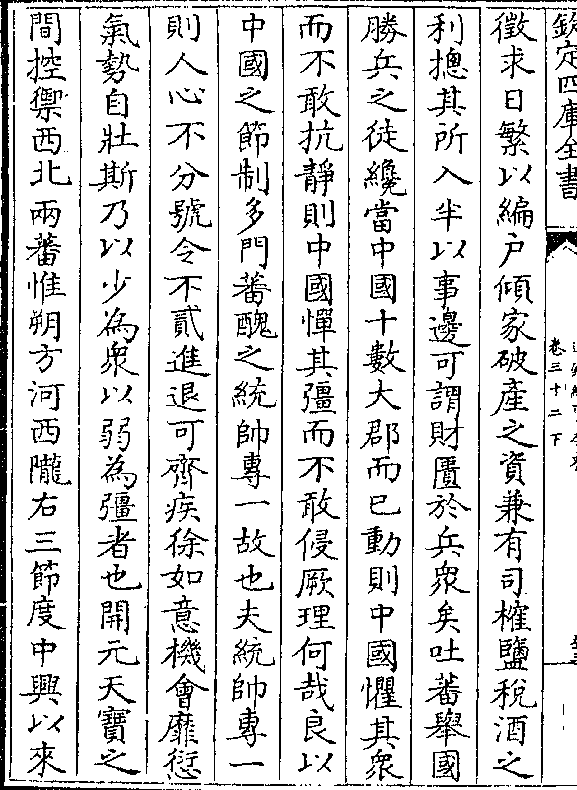 欽定四庫全書
卷三十二下
徵求日繁以編户傾家破產之資兼有司榷鹽稅酒之
利摠其所入半以事邊可謂財匱於兵衆矣吐蕃舉國
勝兵之徒纔當中國十數大郡而已動則中國懼其衆
而不敢抗靜則中國憚其彊而不敢侵厥理何哉良以
中國之節制多門蕃醜之統帥專一故也夫統帥專一
則人心不分號令不貳進退可齊疾徐如意機會靡愆
氣勢自壯斯乃以少為衆以弱為彊者也開元天寶之
間控禦西北兩蕃惟朔方河西隴右三節度中興以來